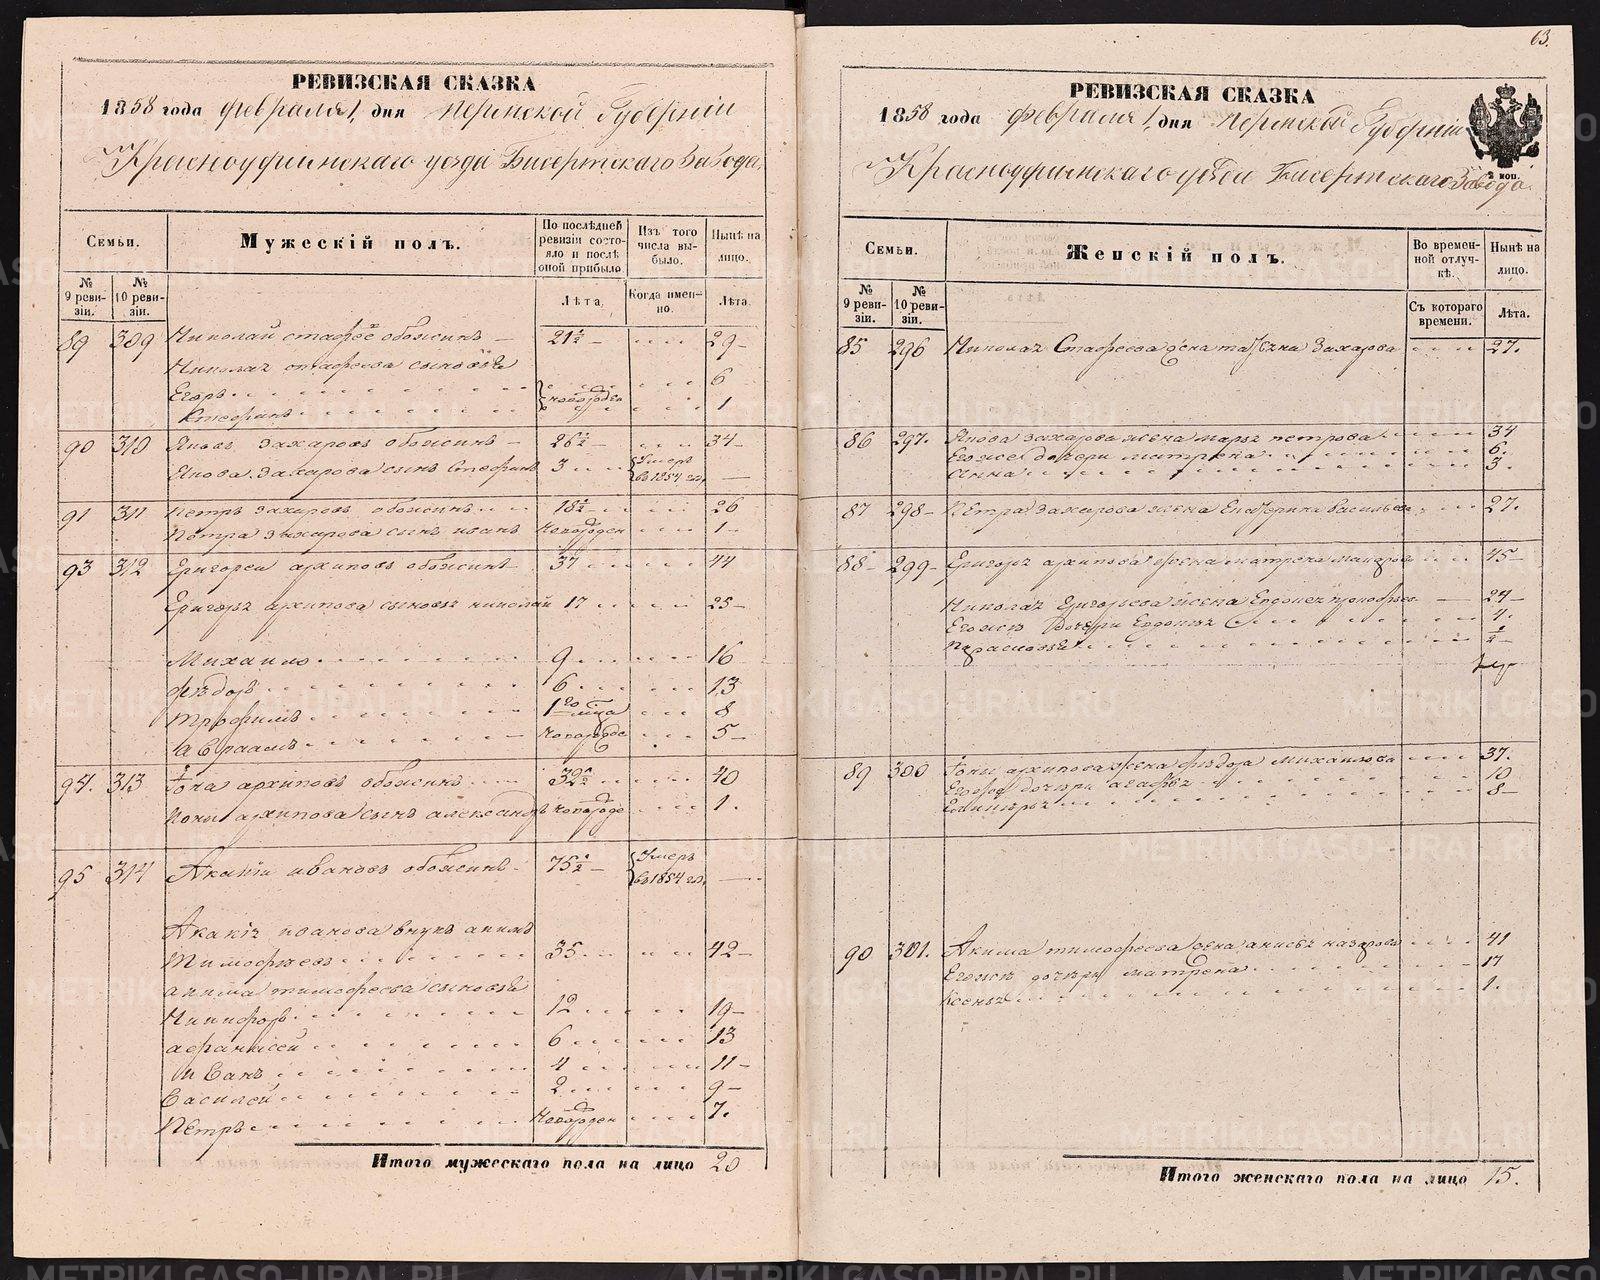 РЕВИЗСКАЯ СКАЗКА
1858 года февраля 1 дня Пермской Губерніи
Красноуфимскаго уезда Бисертскаго Завода
Семьи.
Мужескій полъ.
По послѣдней ревизіи состояло и послѣ оной прибыло.
Изъ того числа выбыло.
Нынѣ на лицо.
№ 9 ревизіи.
№ 10 ревизіи.
Лѣта.
Когда именно.
Лѣта.
89 309 Николай 21½ 29
сыновья
Егоръ 6
новорожд
1
90 310 Яковъ Захаровъ 26½ 34
Якова Захарова сынъ 3 Умеръ въ 1854 го.
91 311 Петръ Захаровъ 18½ 26
Петра Захарова сынъ Иванъ новорожден 1
93 312 Григорей Архиповъ 37 44
Архипова сыновья Николай 17 25
Михайло 9 16
Фёдоръ 6 13
Трофимъ 8
Авраамъ новорожде 5
94. 313 Іона Архиповъ 32½ 40
Іоны Архипова сынъ Александръ новорожде 1.
95 314 Акакій Ивановъ 75½ Умеръ въ 1854 го.
Иванова внукъ Акимъ
Тимофеевъ 35 42
Акима Тимофеева сыновья
Никифоръ 12 19
Афанасей 6 13
Иванъ 4 11
Василей 2 9
Петръ новорожден 7.
Итого мужескаго пола на лицо 20
63.
РЕВИЗСКАЯ СКАЗКА
1858 года февраля 1 дня Пермской Губерніи
2 коп.
Красноуфимскаго уѣзда Бисертскаго Завода.
Семьи.
Женскій полъ.
Во временной отлучкѣ.
Нынѣ на лицо.
№ 9 ревизіи.
№ 10 ревизіи.
Съ котораго времени.
Лѣта.
85 296 жена Татьяна Захарова 27.
86 297. Якова Захарова жена Марья Петрова 34
Его же дочери Матрена 6.
Анна 3.
87 298 Петра Захарова жена Екатерина Васильева 27.
88 299 Архипова жена Матрена Макарова 45
Николая Григорьева жена 24
Его же дочери 4.
½
89 300 Іоны Архипова жена Михайлова 37.
Его же дочери Агафья 10
8
90 301. Акима Тимофеева жена Анисья Назарова 41
Его же дочери Матрена 17
Ксенья 1.
Итого женскаго пола на лицо 15.
METRIKI.GASO-URAL.RU